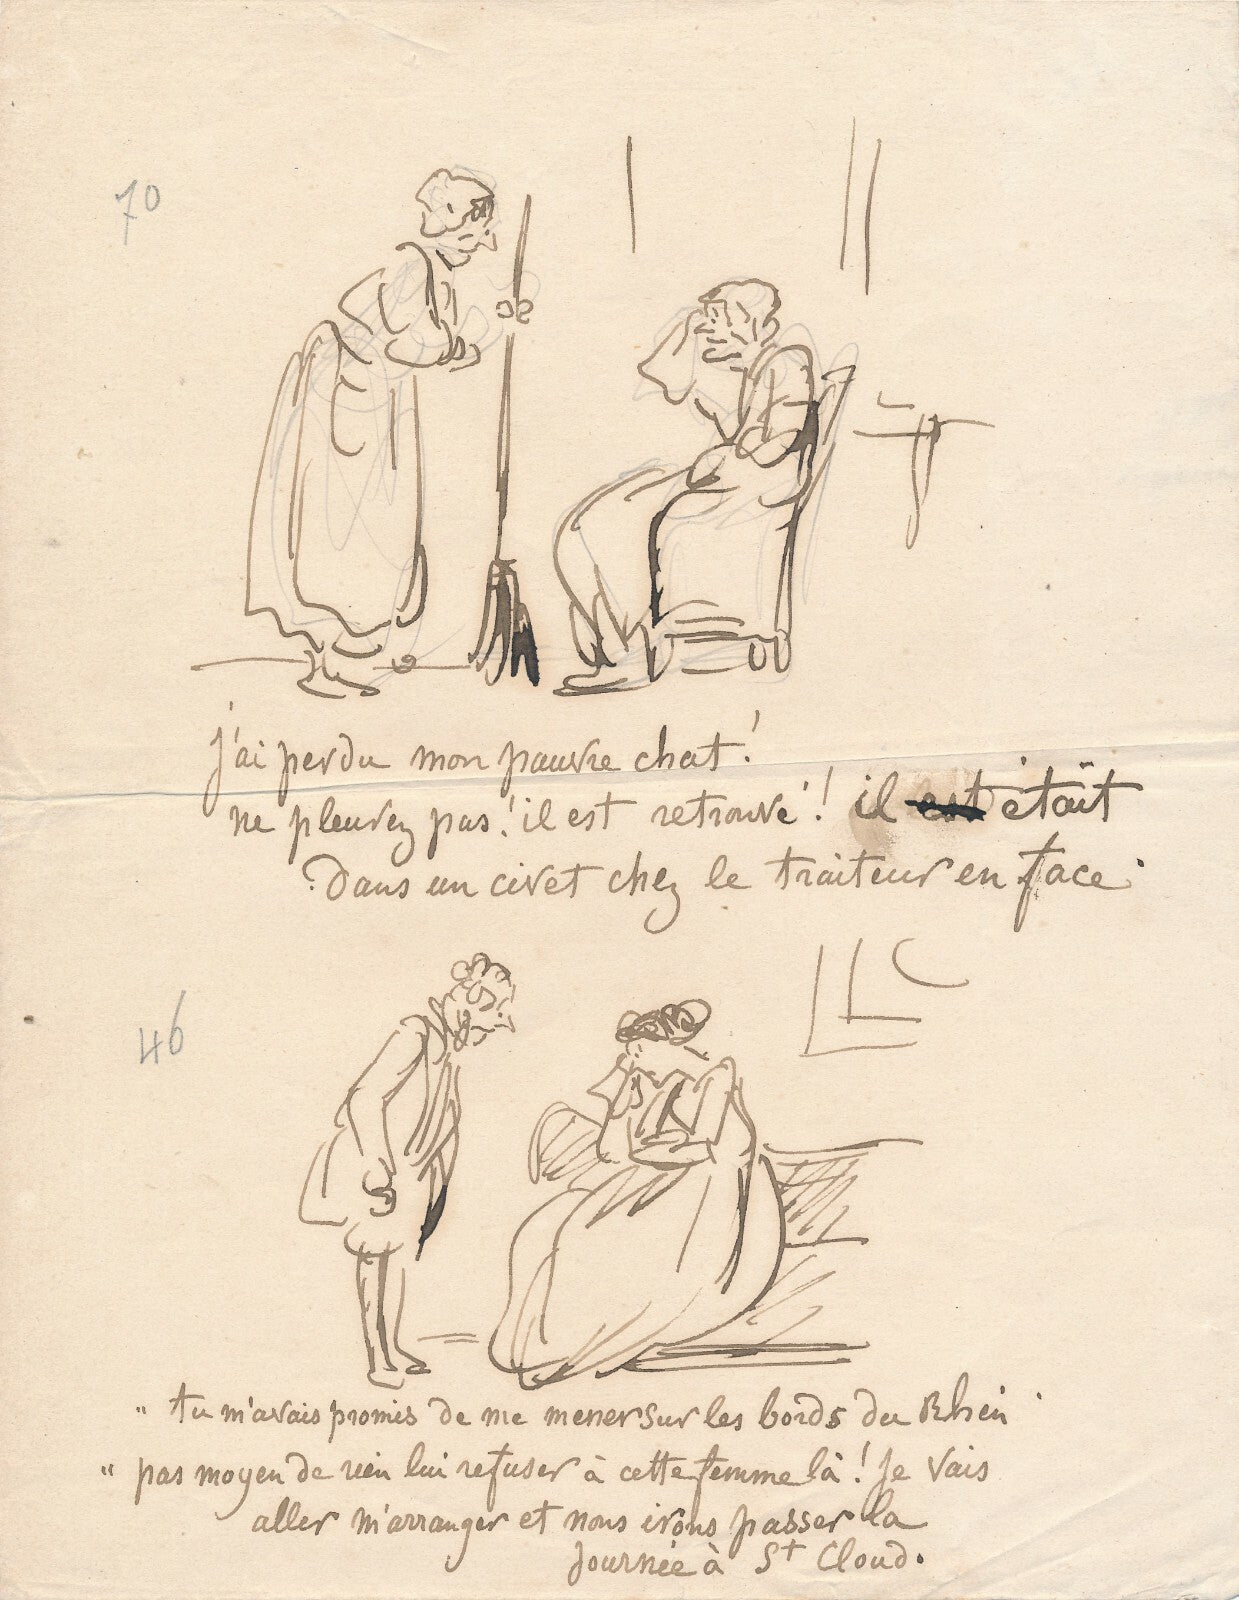 70
j'ai perdu mon pauvre chat!
ne pleurez pas! il est retrouvé! il est était
Dans un civet chez le traiteur en face.
46
" tu m'avais promis de me mener sur les bords du Rhin
" pas moyen de rien lui refuser à cette femme là! Je vais
aller m'arranger et nous irons passer la
Journée à St Cloud.